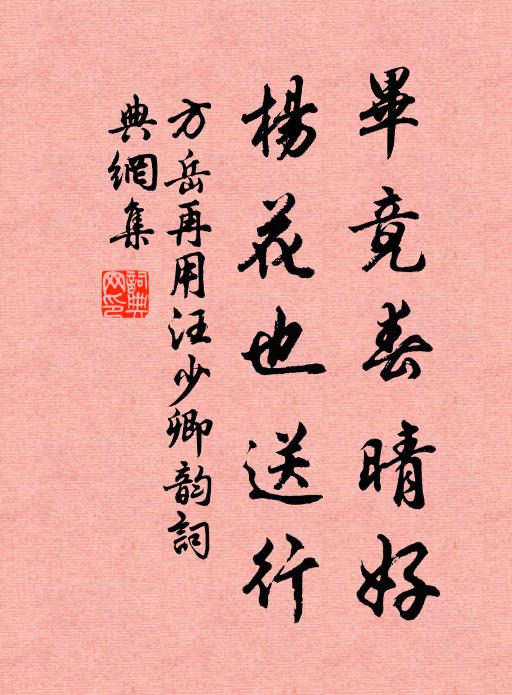 畢竟春晴好
楊花也送行
方岳再用汪少卿韵詞
典網集
詞典网印